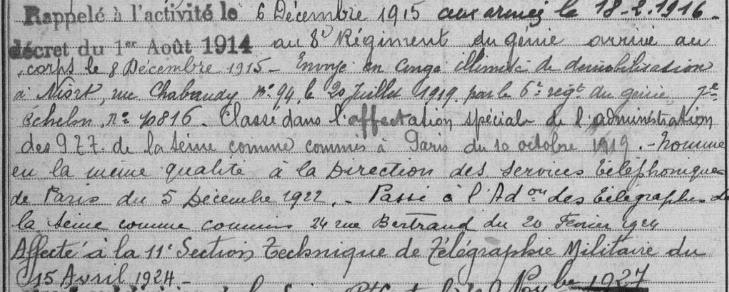 Rappelé à l'activité le 6 Décembre 1915 aux armées le 18-2-1916.
décret du 1er Août 1914 au 8e Régiment du génie arrivé au
corps le 8 Décembre 1915 - Envoyé en congé illimité de démobilisation
à Niort, rue Chabaudy n° 94, le 20 Juillet 1919, par le 6e régt du génie 7e
échelon, n° 70816. Classé dans l'affectation spéciale de l'administration
des P.T.T. de la Seine comme commis à Paris du 10 octobre 1919. - Nommé
en la même qualité à la Direction des services téléphoniques
de Paris du 5 Décembre 1922. - Passé à l'Adon des télégraphes de
la Seine comme commis 24 rue Bertrand du 20 Février 1924
Affecté à la 11e Section Technique de Télégraphie Militaire du
15 Avril 1924 -
1927